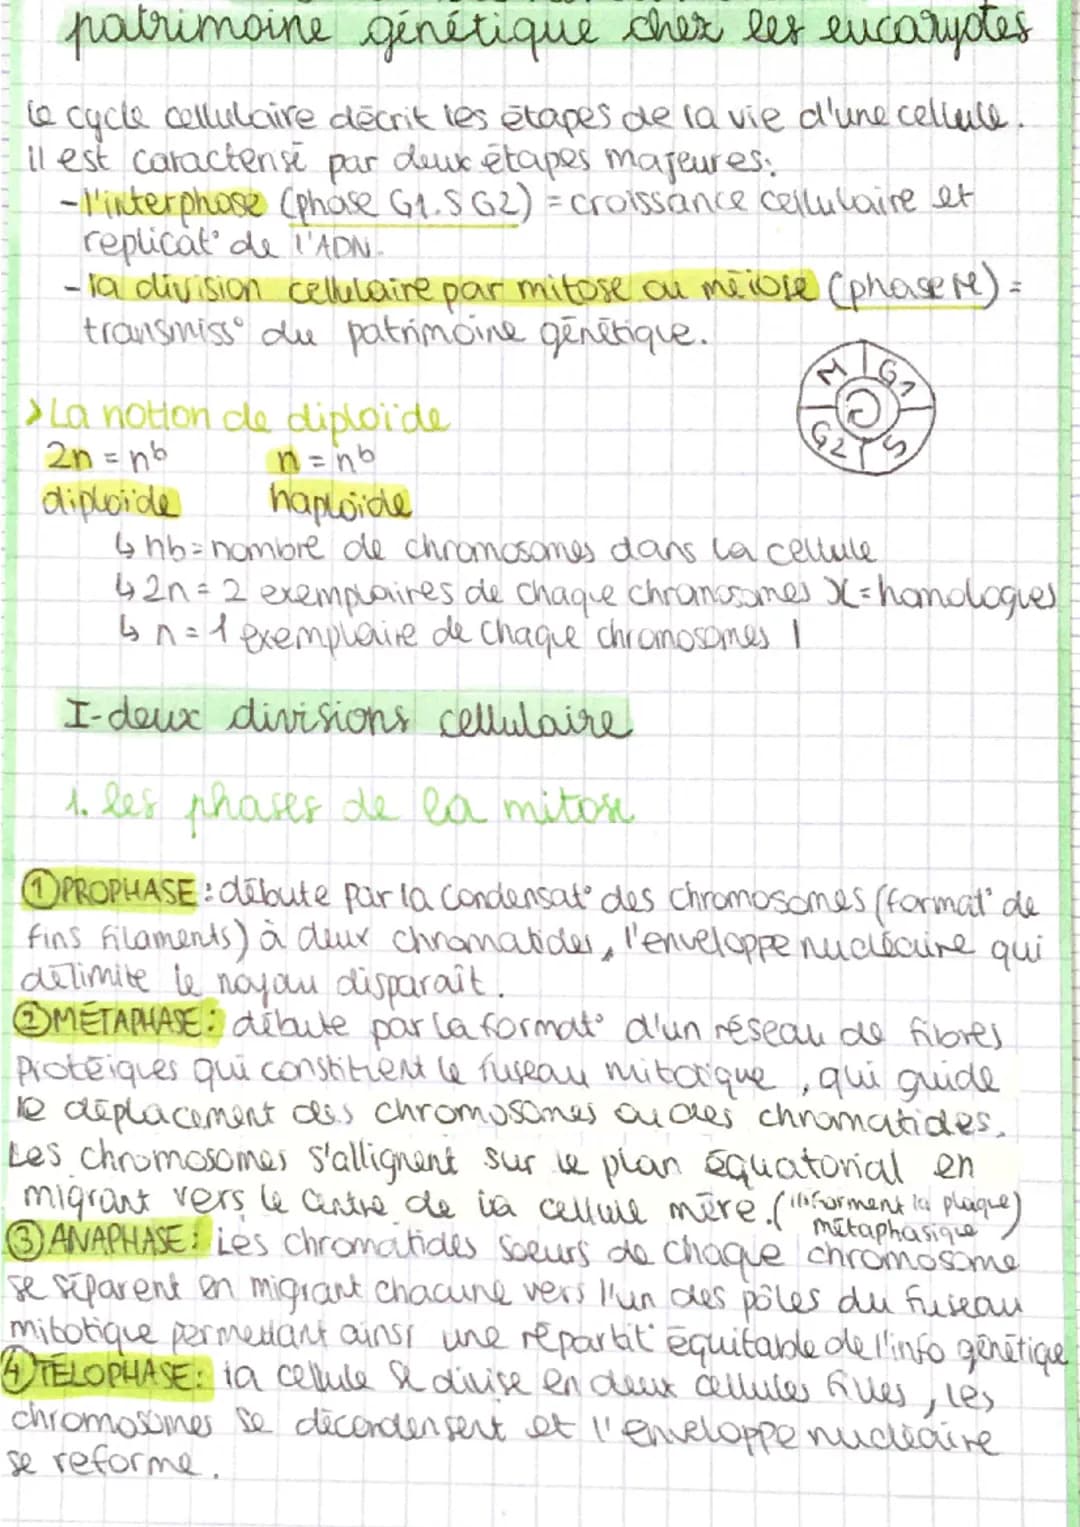 patrimoine génétique chez les eucaryotes
le cycle cellulaire décrit les étapes de la vie d'une cellule.
Il est caractérisé par deux étapes majeures:
-l'interphase (phase G1.S G2) = croissance cellulaire et
replicat° de l'ADN.
-la division cellulaire par mitose ou méiose (phase M) =
transmiss° du patrimoine génétique.
M G1
G2 S
>La notion de diploïde
2n = nb n = nb
diploïde haploïde
↳ nb = nombre de chromosomes dans la cellule
↳ 2n = 2 exemplaires de chaque chromosomes X = homologues
↳ n = 1 exemplaire de chaque chromosomes I
I-deux divisions cellulaire
1. les phases de la mitose
① PROPHASE : débute par la condensat° des chromosomes (format° de
fins filaments) à deux chromatides, l'enveloppe nucléaire qui
délimite le noyau disparaît.
② MÉTAPHASE : débute par la format° d'un réseau de fibres
protéiques qui constituent le fuseau mitotique, qui guide
le déplacement des chromosomes ou des chromatides.
Les chromosomes s'allignent sur le plan équatorial en
migrant vers le centre de la cellule mère. (ils forment la plaque
métaphasique)
③ ANAPHASE : Les chromatides soeurs de chaque chromosome
se séparent en migrant chacune vers l'un des pôles du fuseau
mitotique permettant ainsi une répartit° équitable de l'info génétique
④ TÉLOPHASE : la cellule se divise en deux cellules filles, les
chromosomes se décondensent et l'enveloppe nucléaire
se reforme.